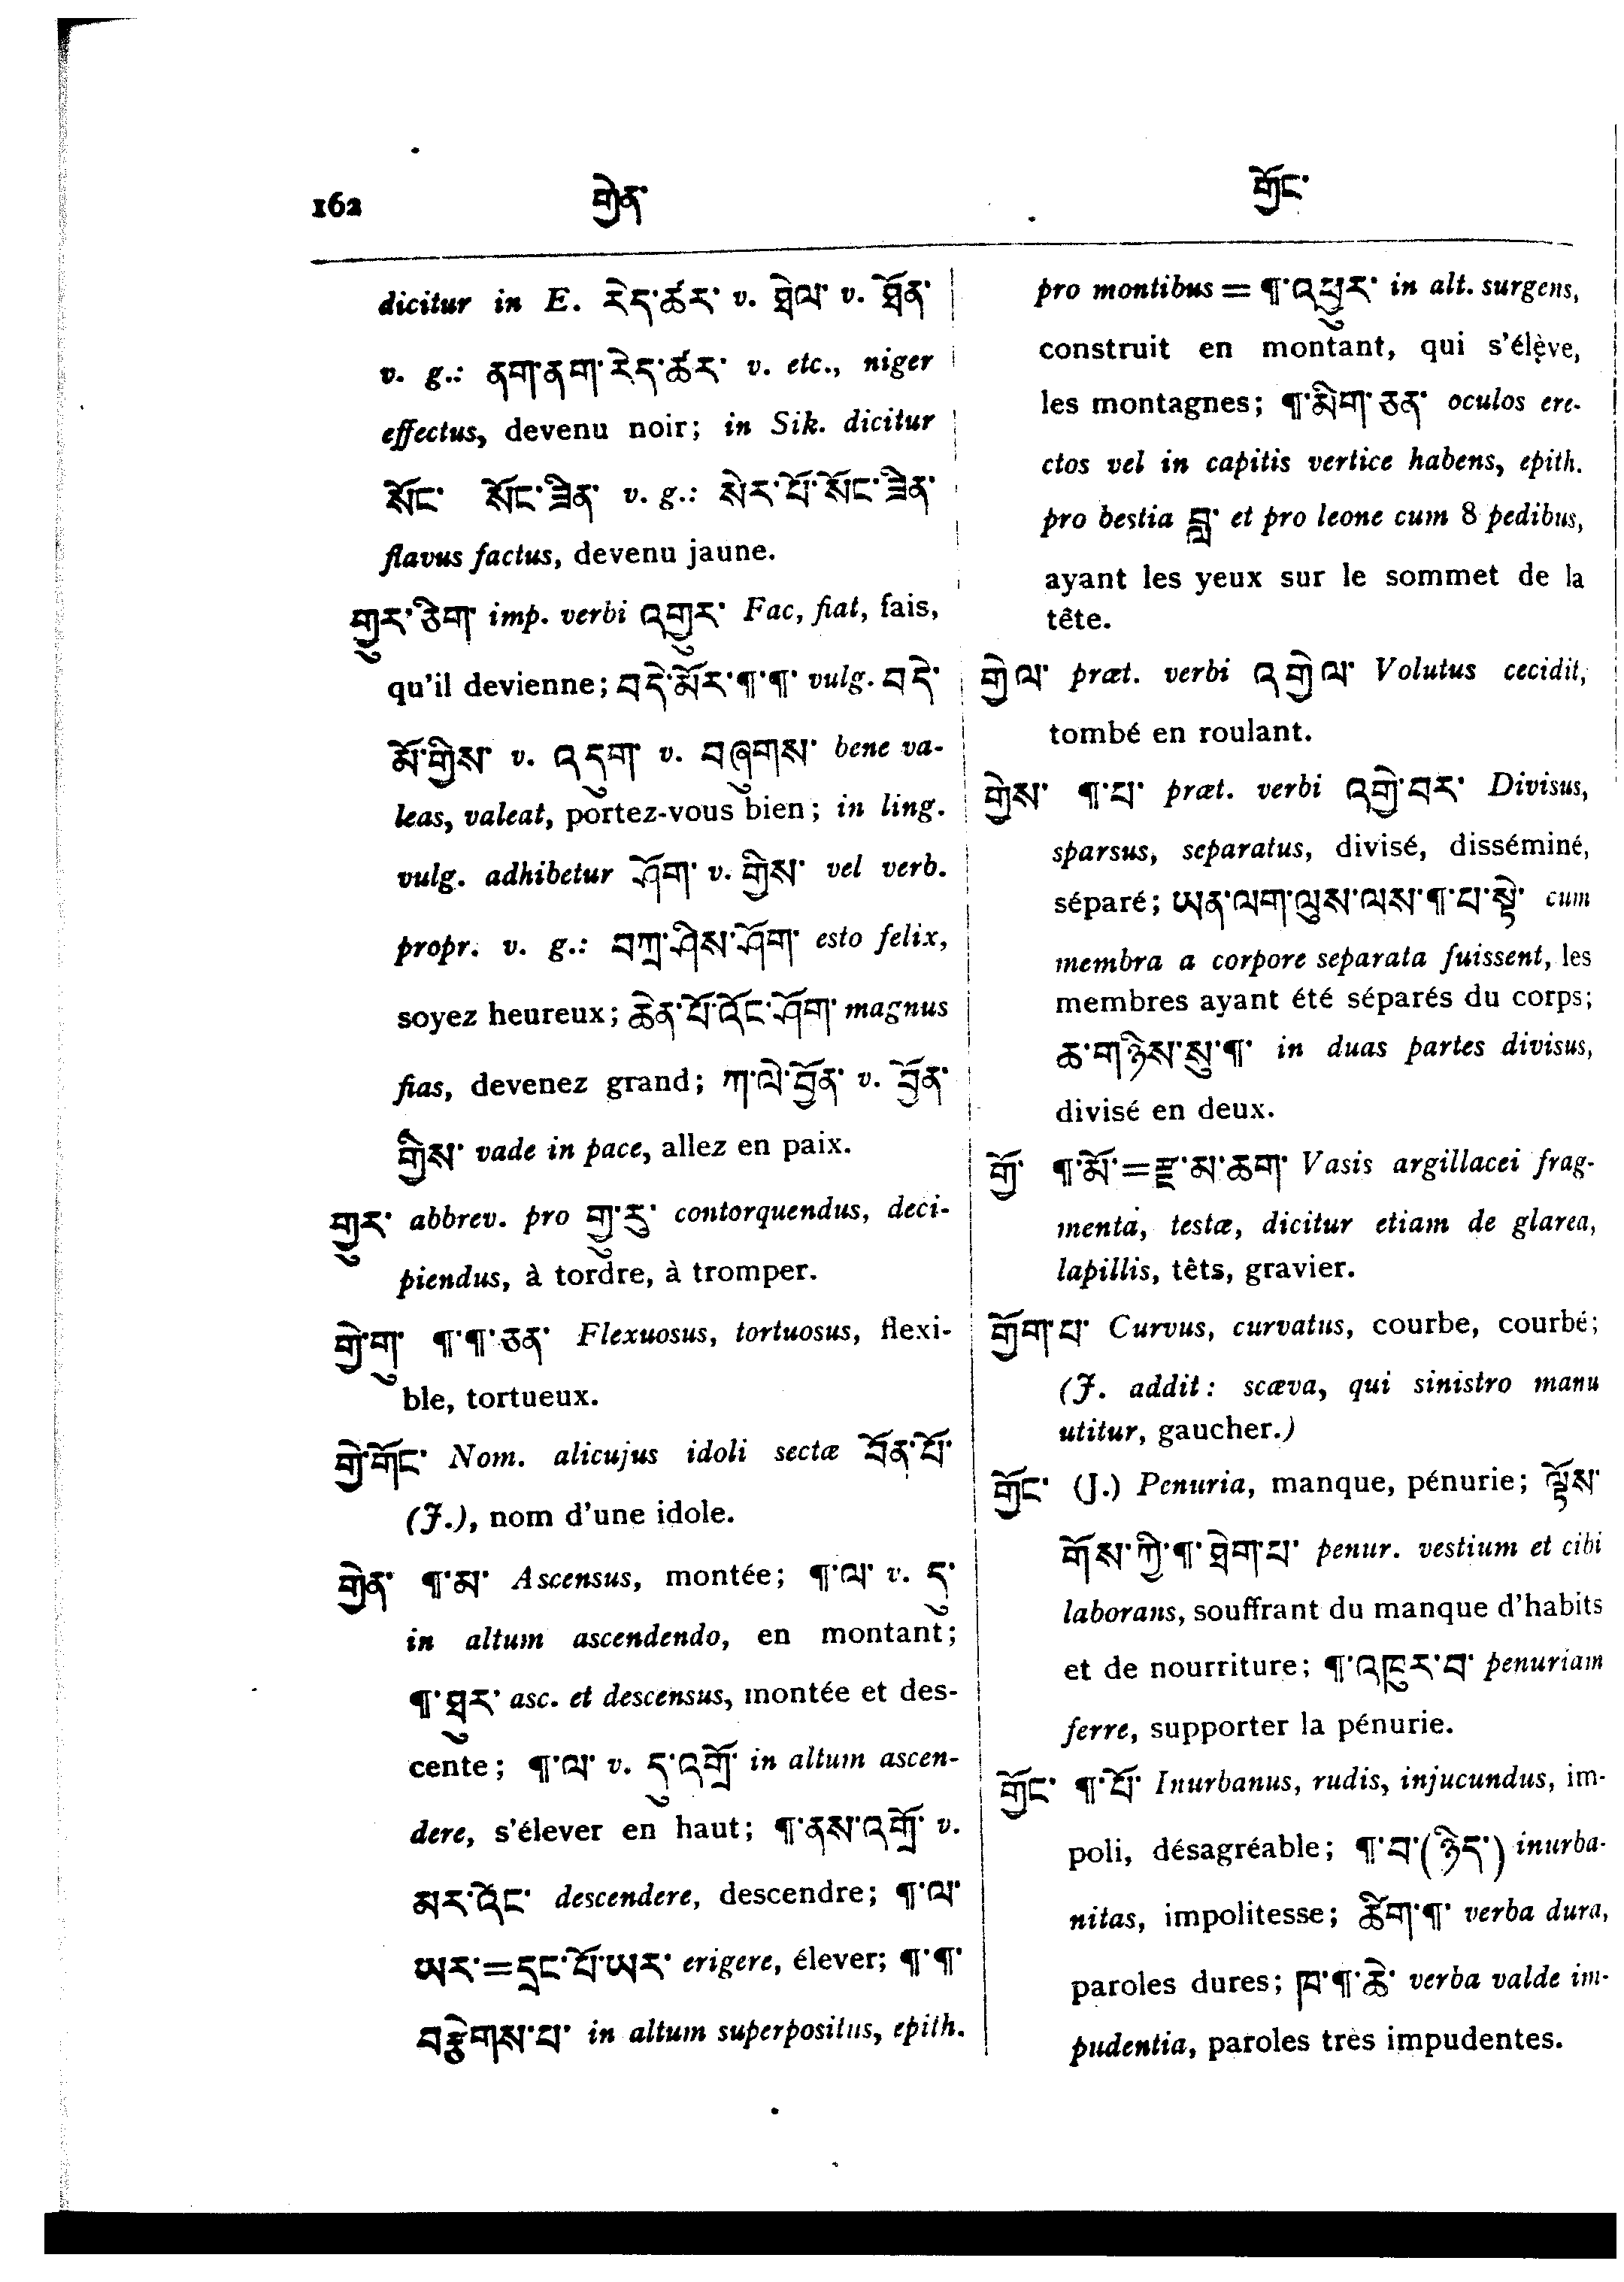 162 གྱེན་ གྱོང་
dicitur in E. རེད་ཚར་ v. ཐེལ་ v. ཐོན་
v. g.: ནག་ནག་རེད་ཚར་ v. etc., niger
effectus, devenu noir; in Sik. dicitur
སོང་ སོང་ཟིན་ v. g.: སེར་པོ་སོང་ཟིན་
flavus factus, devenu jaune.
གྱུར་ཅིག་ imp. verbi འགྱུར་ Fac, fiat, fais,
qu'il devienne; བདེ་མོར་¶་¶་ vulg. བདེ་
མོ་གྱིས་ v. འདུག་ v. བཞུགས་ bene va-
leas, valeat, portez-vous bien; in ling.
vulg. adhibetur ཤོག་ v. གྱིས་ vel verb.
propr. v. g.: བཀྲ་ཤིས་ཤོག་ esto felix,
soyez heureux; ཆེན་པོ་འོང་ཤོག་ magnus
fias, devenez grand; ཀ་ལེ་བྱོན་ v. བྱོན་
གྱིས་ vade in pace, allez en paix.
གྱུར་ abbrev. pro གྱུ་རུ་ contorquendus, deci-
piendus, à tordre, à tromper.
གྱེ་གུ་ ¶་¶་ཅན་ Flexuosus, tortuosus, flexi-
ble, tortueux.
གྱེ་གོང་ Nom. alicujus idoli sectæ བོན་པོ་
(J.), nom d'une idole.
གྱེན་ ¶་མ་ Ascensus, montée; ¶་ལ་ v. དུ་
in altum ascendendo, en montant;
¶་ཐུར་ asc. et descensus, montée et des-
cente; ¶་ལ་ v. དུ་འགྲོ་ in altum ascen-
dere, s'élever en haut; ¶་ནས་འགྲོ་ v.
མར་འོང་ descendere, descendre; ¶་ལ་
ཡར་=དྲང་པོ་ཡར་ erigere, élever; ¶་¶་
བརྩེགས་པ་ in altum superpositus, epith.
pro montibus = ¶་འཕུར་ in alt. surgens,
construit en montant, qui s'élève,
les montagnes; ¶་མིག་ཅན་ oculos ere-
ctos vel in capitis vertice habens, epith.
pro bestia et pro leone cum 8 pedibus,
ayant les yeux sur le sommet de la
tête.
གྱེལ་ præt. verbi འགྱེལ་ Volutus cecidit,
tombé en roulant.
གྱེས་ ¶་པ་ præt. verbi འགྱེ་བར་ Divisus,
sparsus, separatus, divisé, disséminé,
séparé; ཡན་ལག་ལུས་ལས་¶་པ་སྟེ་ cum
membra a corpore separata fuissent, les
membres ayant été séparés du corps;
ཆ་གཉིས་སུ་¶་ in duas partes divisus,
divisé en deux.
གྱོ་ ¶་མོ་=རྫ་མ་ཆག་ Vasis argillacei frag-
menta, testæ, dicitur etiam de glarea,
lapillis, têts, gravier.
གྱོག་པ་ Curvus, curvatus, courbe, courbé;
(J. addit: scæva, qui sinistro manu
utitur, gaucher.)
གྱོང་ (J.) Penuria, manque, pénurie; ལྟོས་
གོས་ཀྱི་¶་ཐེག་པ་ penur. vestium et cibi
laborans, souffrant du manque d'habits
et de nourriture; ¶་འཁུར་བ་ penuriam
ferre, supporter la pénurie.
གྱོང་ ¶་པོ་ Inurbanus, rudis, injucundus, im-
poli, désagréable; ¶་བ་(ཉིད་) inurba-
nitas, impolitesse; ཚིག་¶་ verba dura,
paroles dures; ཁ་¶་ཆེ་ verba valde im-
pudentia, paroles très impudentes.